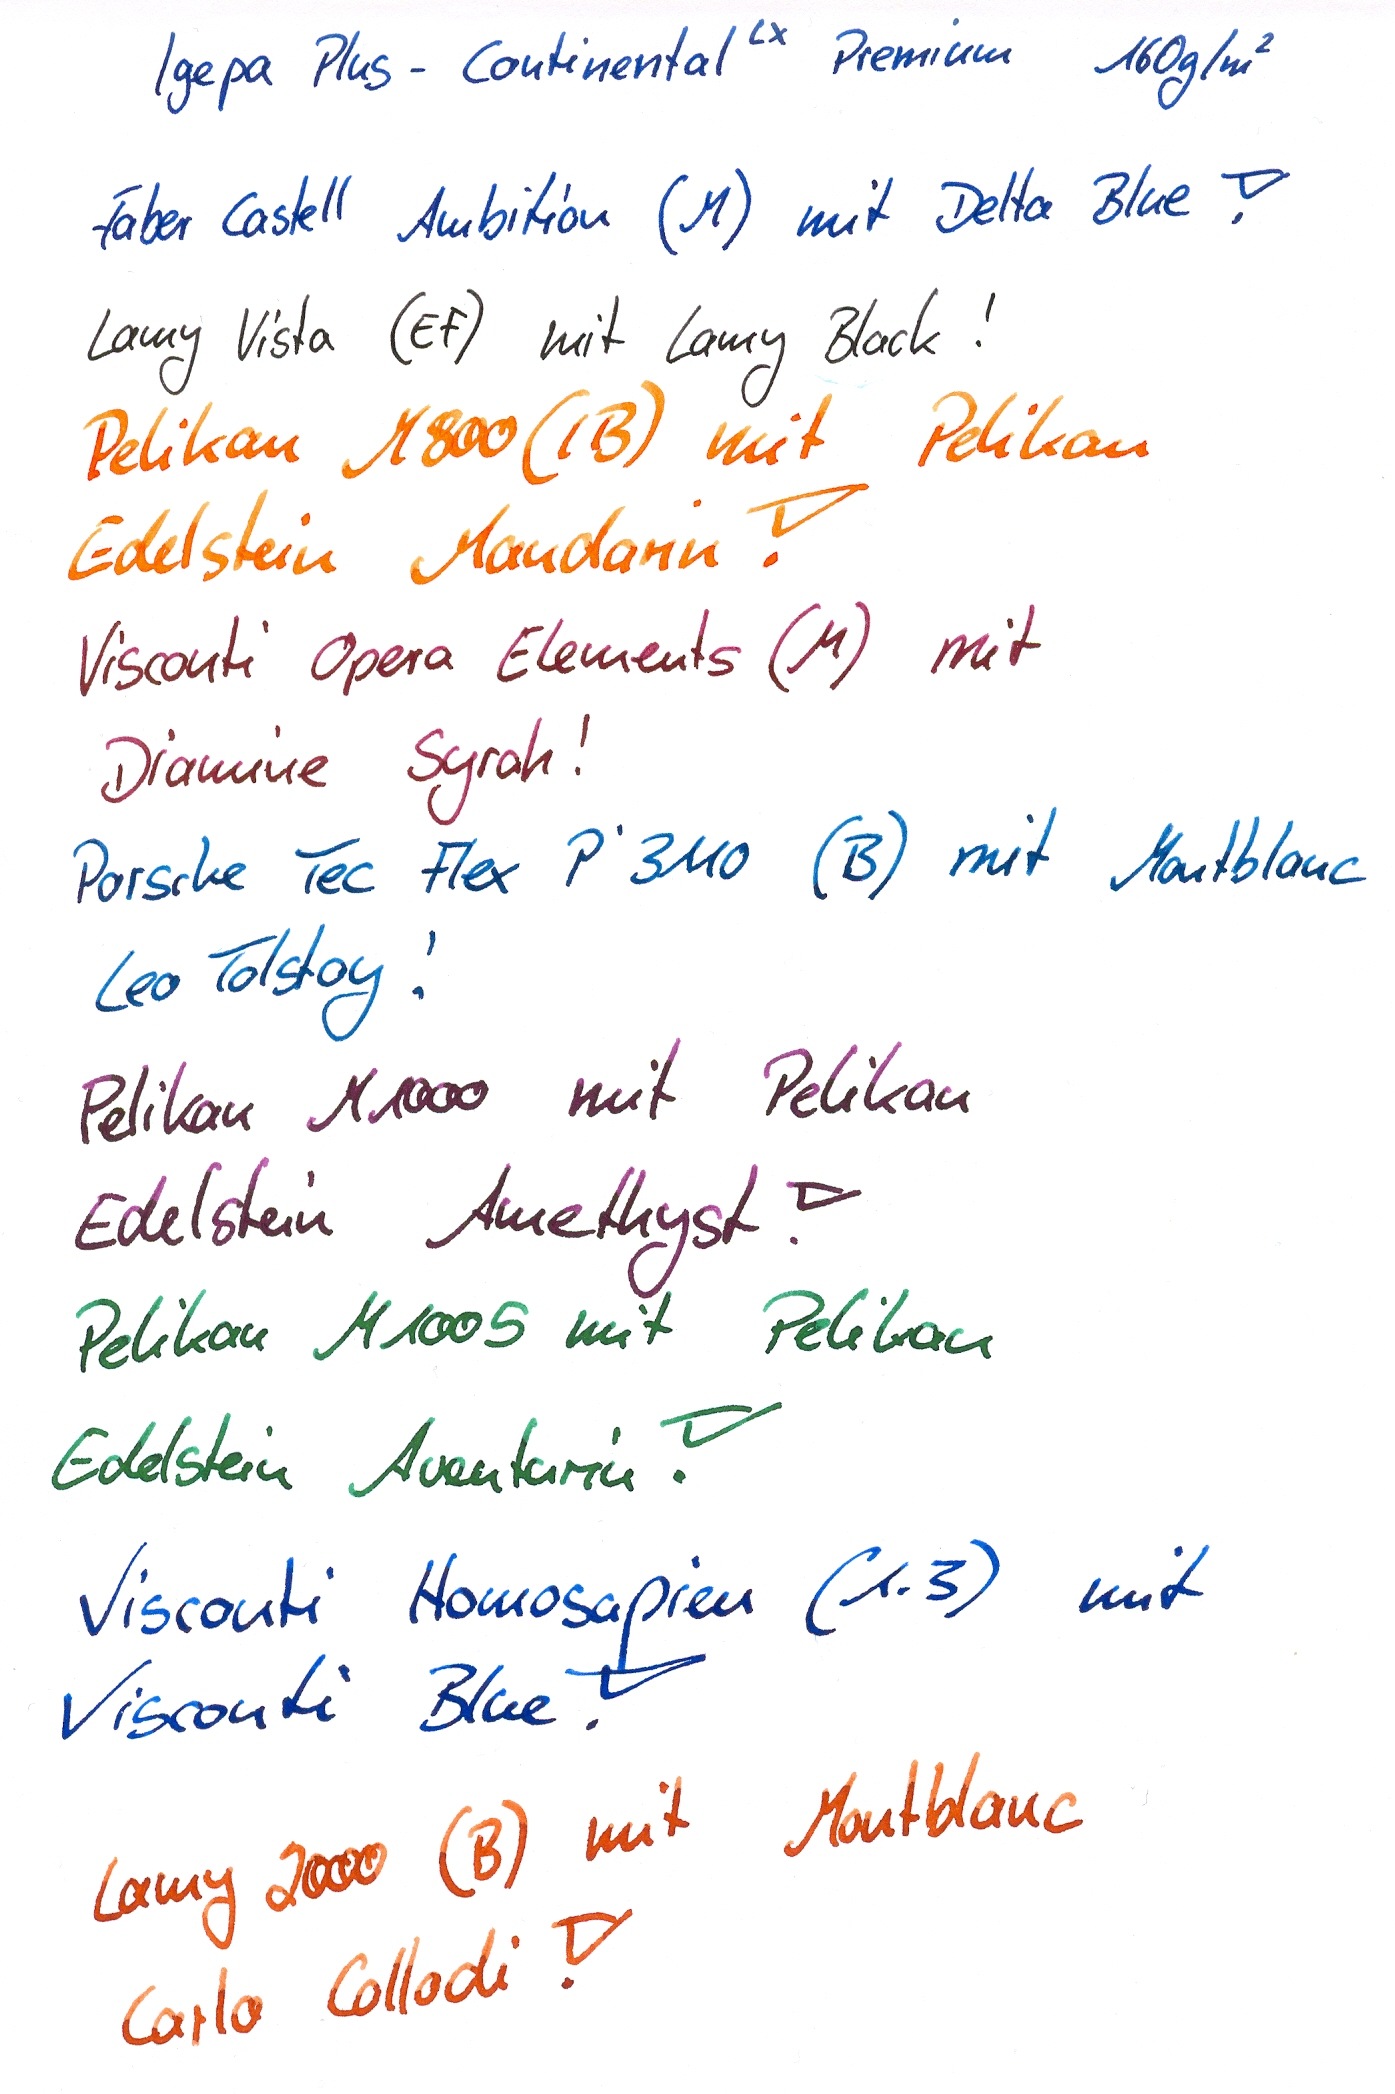 Igepa Plus - Continental LX Premium 160g/m²
Faber Castell Ambition (M) mit Delta Blue!
Lamy Vista (EF) mit Lamy Black!
Pelikan M800 (IB) mit Pelikan
Edelstein Mandarin!
Visconti Opera Elements (M) mit
Diamine Syrah!
Porsche Tec Flex P'3110 (B) mit Montblanc
Leo Tolstoy!
Pelikan M1000 mit Pelikan
Edelstein Amethyst!
Pelikan M1005 mit Pelikan
Edelstein Aventurin!
Visconti Homosapien (1.3) mit
Visconti Blue!
Lamy 2000 (B) mit Montblanc
Carlo Collodi!